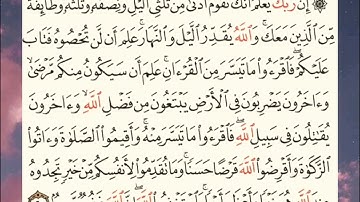 إِنَّ رَبَّكَ يَعْلَمُ أَنَّكَ تَقُومُ أَدْنَىٰ مِن ثُلُثَيِ ٱلَّيْلِ وَنِصْفَهُۥ وَثُلُثَهُۥ وَطَآئِفَةٌ
مِّنَ ٱلَّذِينَ مَعَكَ ۚ وَٱللَّهُ يُقَدِّرُ ٱلَّيْلَ وَٱلنَّهَارَ ۚ عَلِمَ أَن لَّن تُحْصُوهُ فَتَابَ
عَلَيْكُمْ ۖ فَٱقْرَءُوا۟ مَا تَيَسَّرَ مِنَ ٱلْقُرْءَانِ ۚ عَلِمَ أَن سَيَكُونُ مِنكُم مَّرْضَىٰ ۙ
وَءَاخَرُونَ يَضْرِبُونَ فِى ٱلْأَرْضِ يَبْتَغُونَ مِن فَضْلِ ٱللَّهِ ۙ وَءَاخَرُونَ
يُقَٰتِلُونَ فِى سَبِيلِ ٱللَّهِ ۖ فَٱقْرَءُوا۟ مَا تَيَسَّرَ مِنْهُ ۚ وَأَقِيمُوا۟ ٱلصَّلَوٰةَ وَءَاتُوا۟
ٱلزَّكَوٰةَ وَأَقْرِضُوا۟ ٱللَّهَ قَرْضًا حَسَنًا ۚ وَمَا تُقَدِّمُوا۟ لِأَنفُسِكُم مِّنْ خَيْرٍ تَجِدُوهُ